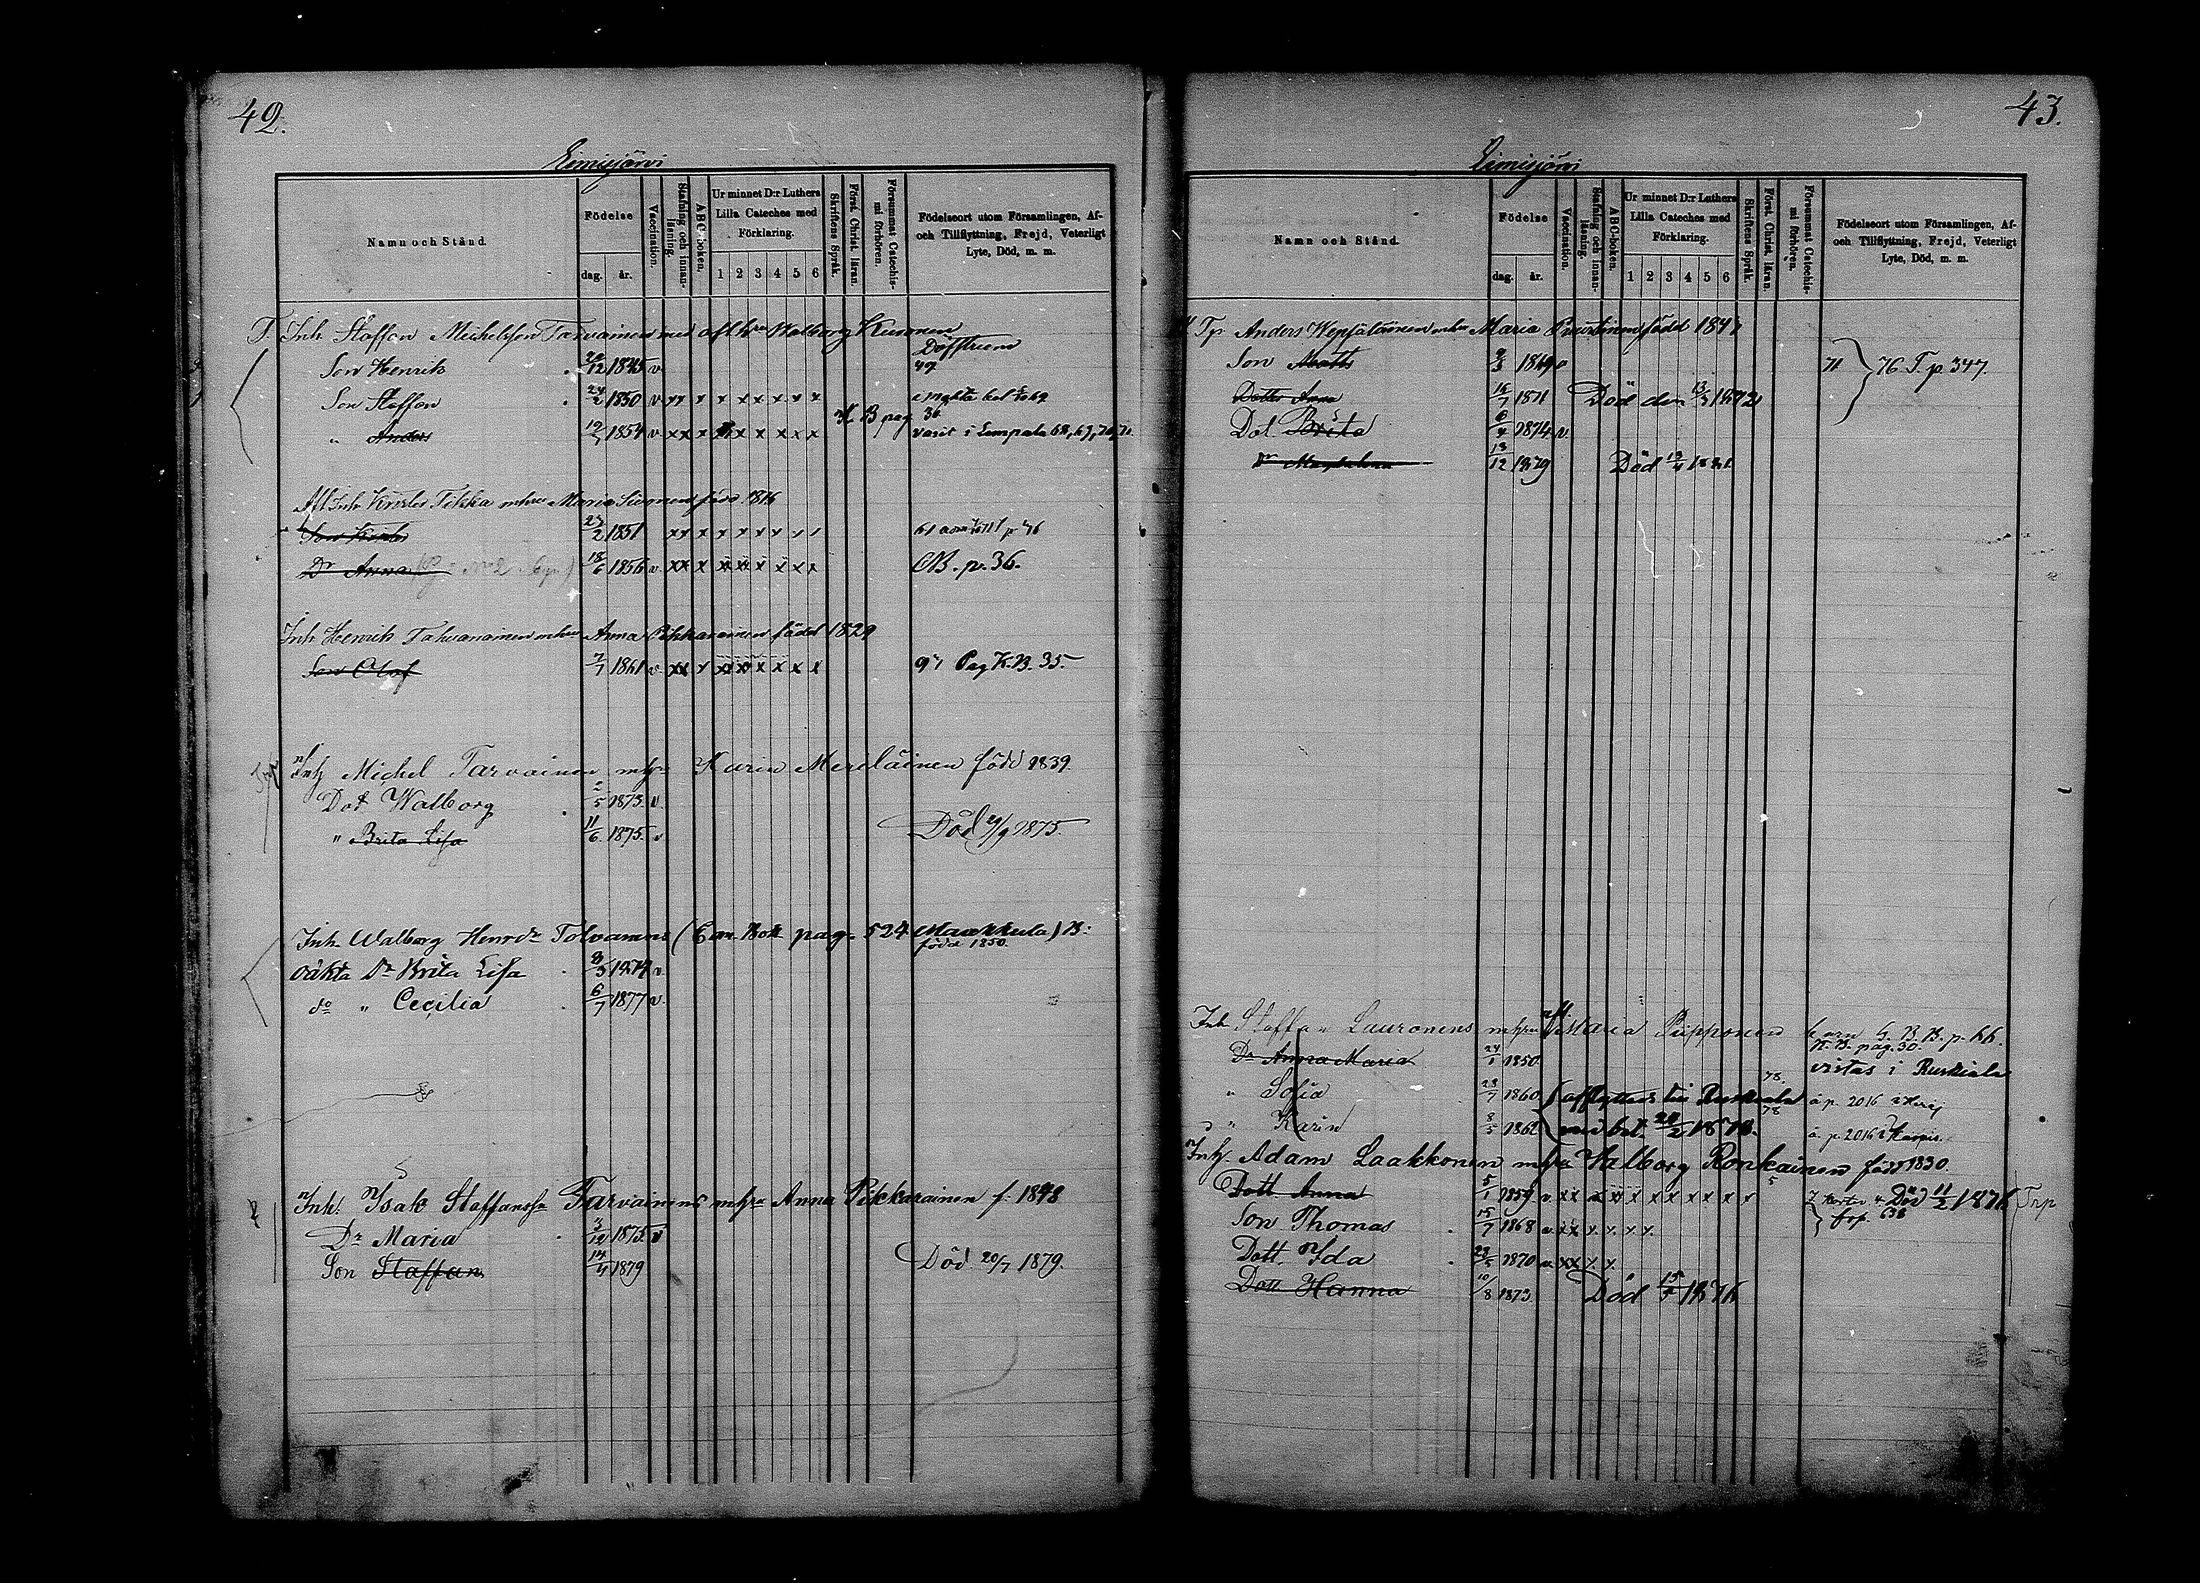 42.
Eimisjärvi
Namn och Stånd.
Födelse
dag. år.
Vaccination.
Stafning och innanläsning.
A B C-boken.
Ur minnet D:r Luthers Lilla Cateches med Förklaring.
1 2 3 4 5 6
Skriftens Språk.
Först. Christ. läran.
Försummat Catechismi förhören.
Födelseort utom Församlingen, Af- och Tillflyttning, Frejd, Veterligt Lyte, Död, m. m.
T. Inh. Staffan Michelsson Tarvainen med afl. hru Walborg Kuronen
Döfstum
Son Henrik 20/12 1845 v. 49
Son Staffan 24/2 1850 v. xx x x x x x x x
K B pag 36
" Anders 19/7 1854 v xx x x x x x x varit i Lempala 68, 69, 70, 71
Afl Inh Krister Tikka mhru Maria Sivonen född 1816
Son Krister 27/2 1851 xx x x x x x x x
Dr Anna 18/6 1856 v. xx x x x x x x x CB. p. 36.
Inh Henrik Tahvanainen mhru Anna Pikkarainen född 1829
Son Olof 7/7 1861 v. xx x x x x x x x Pag K.B. 35.
Inh Michel Tarvainen mhru Karin Meriläinen född 1839.
Dot Walborg 2/5 1873. v.
" Brita Lisa 11/6 1875. v Död 29/9 1875.
Inh. Walborg Henrdr Tolvanens (Com. Bok pag. 524 Maukkula) B:
född 1850.
oäkta Dr Brita Lisa 8/3 1874 v.
do " Cecilia 6/7 1877 v.
Inh. Isak Staffanssn Tarvainens mhru Anna Pikkarainen f. 1848
Dr Maria 3/12 1875. v
Son Staffan 14/4 1879 Död 20/7 1879.
43.
Eimisjärvi
Namn och Stånd.
Födelse
dag. år.
Vaccination.
Stafning och innanläsning.
A B C-boken.
Ur minnet D:r Luthers Lilla Cateches med Förklaring.
1 2 3 4 5 6
Skriftens Språk.
Först. Christ. läran.
Försummat Catechismi förhören.
Födelseort utom Församlingen, Af- och Tillflyttning, Frejd, Veterligt Lyte, Död, m. m.
Tp Anders Wepsäläinen mhru Maria Puustinen född 184
Son Matts 9/3 1869 v 71 } 76 T. p. 347.
Dotter Anna 16/7 1871 Död den 13/3 1872
Dot. Brita 6/4 1874 v.
Dr Magdalena 13/12 1879 Död 13/4 1881
Inh Staffan Lauronens mhru afl. Maria Piipponen barn C. B. B. p. 66.
K. B. pag. 30.
Dr Anna Maria 24/1 1850 vistas i Ruskiala
" Sofia 23/7 1860 { afflyttad till Ruskiala 78. å p. 2016
" Karin 8/5 1862 med bet. 20/2 1878. å p. 2016
Inh. Adam Laakkonen mhru Walborg Ronkainen född 1830.
Dott Anna 5/1 1859 v. xx x x x x x x x x Död 11/2 1876 Trp
Son Thomas 15/7 1868 v. xx x. x. x. x.
Dott. Ida 23/5 1870 v. xx x x
Dott Hanna 10/8 1873 Död 15/7 1876